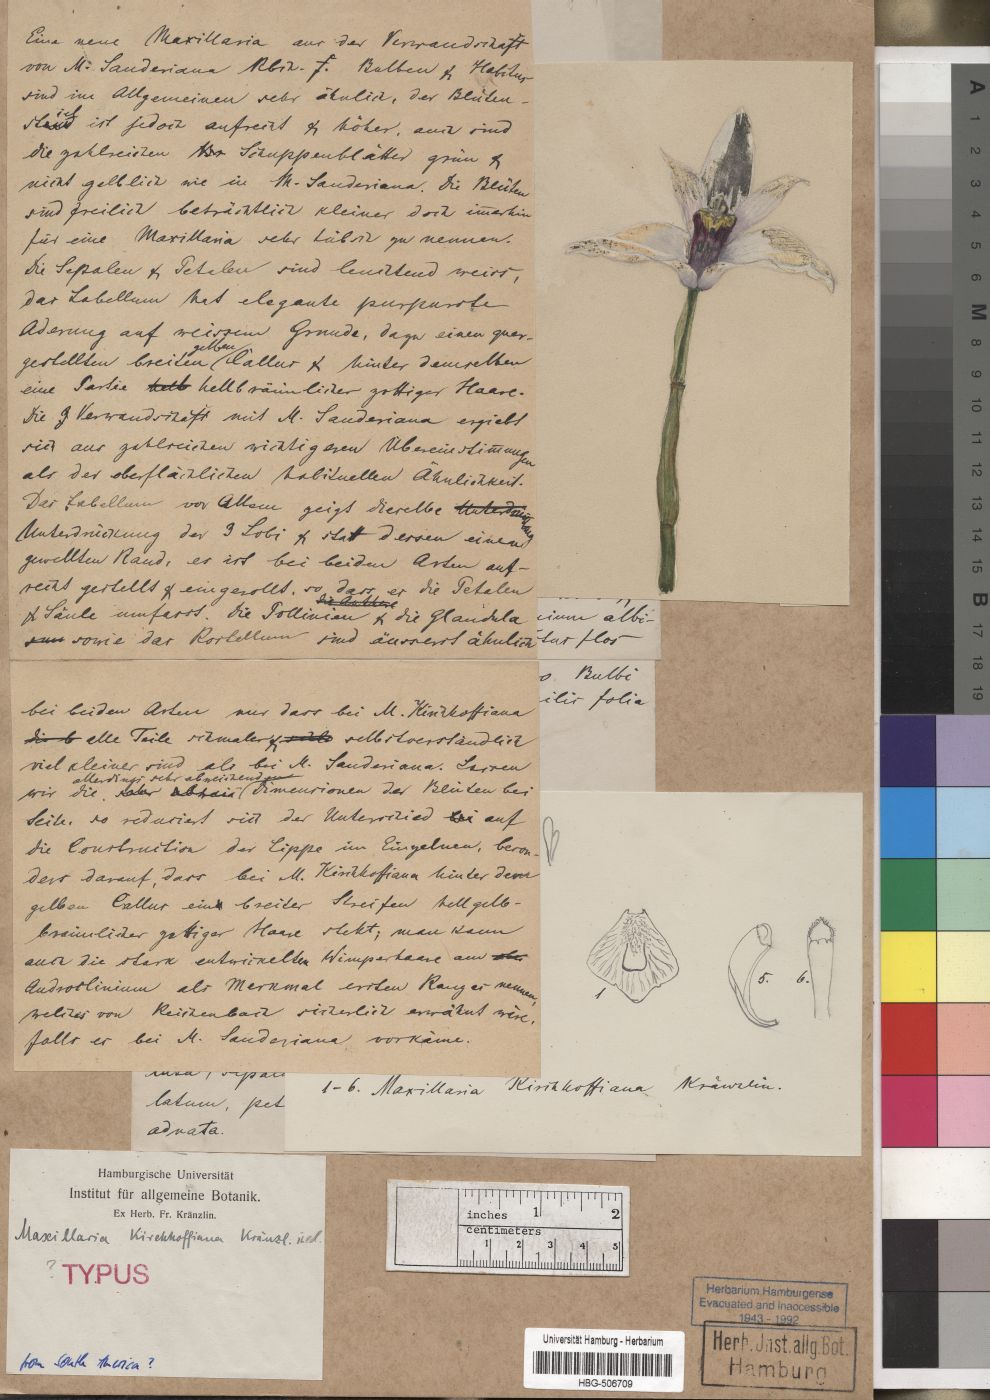 Eine neue Maxillaria aus der Verwandschaft
von M. Sanderiana Rbch. f. Bulben & Habitus
sind im Allgemeinen sehr ähnlich, der Blüten-
stand ist jedoch aufrecht & höher, auch sind
die zahlreichen Schuppenblätter grün &
nicht gelblich wie in M. Sanderiana. Die Blüten
sind freilich beträchtlich kleiner doch immerhin
für eine Maxillaria sehr hübsch zu nennen.
Die Sepalen & Petalen sind leuchtend weiss,
das Labellum hat elegante purpurrote
Aderung auf weissem Grunde, dazu einen quer-
gestellten breiten gelben Callus & hinter demselben
eine Partie hellbräunlicher zottiger Haare.
Die Verwandschaft mit M. Sanderiana ergiebt
sich aus zahlreichen wichtigeren Übereinstimmungen
als der oberflächlichen habituellen Ähnlichkeit.
Das Labellum vor Allem zeigt dieselbe
Unterdrückung der 3 Lobi & statt dessen einen
gewellten Rand, es ist bei beiden Arten auf-
recht gestellt & eingerollt, so dass er die Petalen
& Säule umfasst. Die Pollinien & die Glandula
sowie das Rostellum sind äusserst ähnlich
nium albi-
tur flos
Bulbi
ilis folia
bei beiden Arten nur dass bei M. Kirchhoffiana
alle Teile schmaler & selbstverständlich
viel kleiner sind als bei M. Sanderiana. Lassen
wir die allerdings sehr abweichenden Dimensionen der Blüten bei
Seite, so reduciert sich der Unterschied auf
die Construction der Lippe im Einzelnen, beson-
ders darauf, dass bei M. Kirchhoffiana hinter dem
gelben Callus ein breiter Streifen hellgelb-
bräunlicher zottiger Haare steht; man kann
auch die stark entwickelten Wimperhaare am
Androclinium als Merkmal ersten Ranges nennen,
welches von Reichenbach sicherlich erwähnt wäre,
falls es bei M. Sanderiana vorkäme.
1
5.
6.
1-6. Maxillaria Kirchhoffiana Kränzlin.
latum, pet
adnata.
Hamburgische Universität
Institut für allgemeine Botanik.
Ex Herb. Fr. Kränzlin.
Maxillaria Kirchhoffiana Kränzl. ned.
? TYPUS
from South America ?
inches 1 2
centimeters
1 2 3 4 5
Herbarium Hamburgense
Evacuated and Inaccessible
1943 - 1992
Herb. Inst. allg. Bot.
Hamburg
Universität Hamburg - Herbarium
HBG-506709
A 1 2 3 4 5 6 M 8 9 10 11 12 13 14 15 B 17 18 19